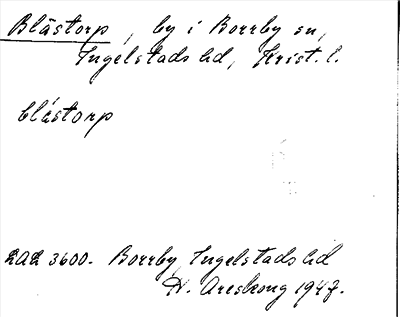 Blåstorp, by i Borrby sn,
Ingelstads hd, Krist. l.
blástorp
LAL 3600. Borrby, Ingelstads hd
N. Areskoug 1947.